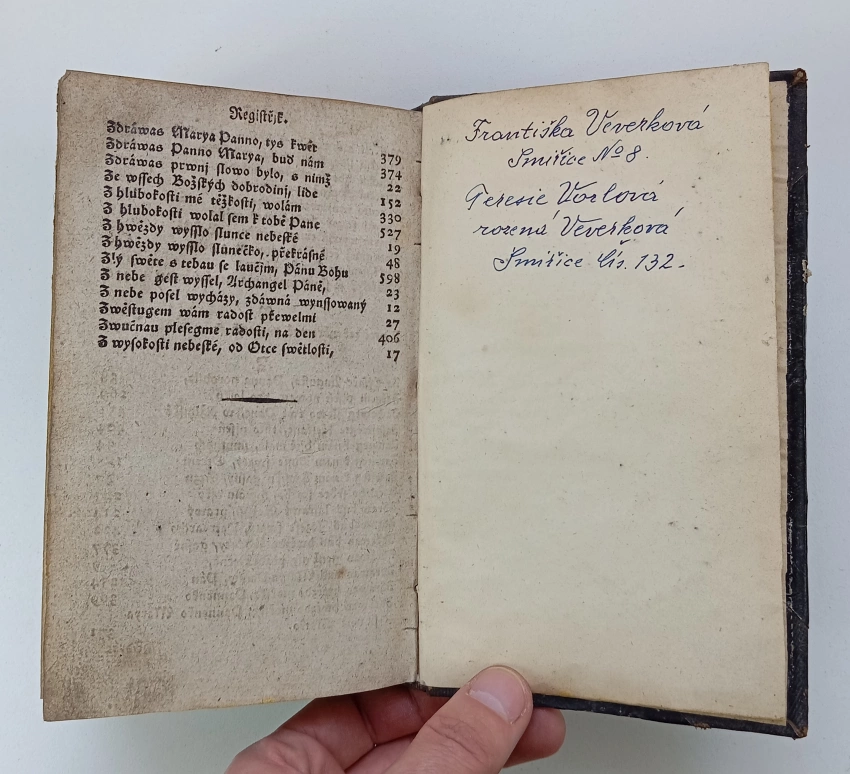 Regiſtřjk.
Zdráwas Marya Panno, tys kwěr 379
Zdráwas Panno Marya, bud nám 374
Zdráwas prwnj ſlowo bylo, s njmž 22
Ze wſſech Božſkých dobrodinj, lide 152
Z hlubokoſti mé těžkoſti, wolám 330
Z hlubokoſti wolal ſem k tobě Pane 527
Z hwězdy wyſſlo ſlunce nebeſké 19
Z hwězdy wyſſlo ſlunéčko, překráſné 48
Zlý ſwěte s tebau ſe laučjm, Pánu Bohu 598
Z nebe geſt wyſſel, Archangel Páně, 23
Z nebe poſel wycházý, zdáwná wynſſowaný 12
Zwěſtugem wám radoſt přewelmi 27
Zwučnau pleſegme radoſti, na den 406
Z wyſokoſti nebeſké, od Otce ſwětloſti, 17
Františka Veverková
Smiřice № 8.
Teresie Vorlová
rozená Veverková
Smiřice Čís. 132.